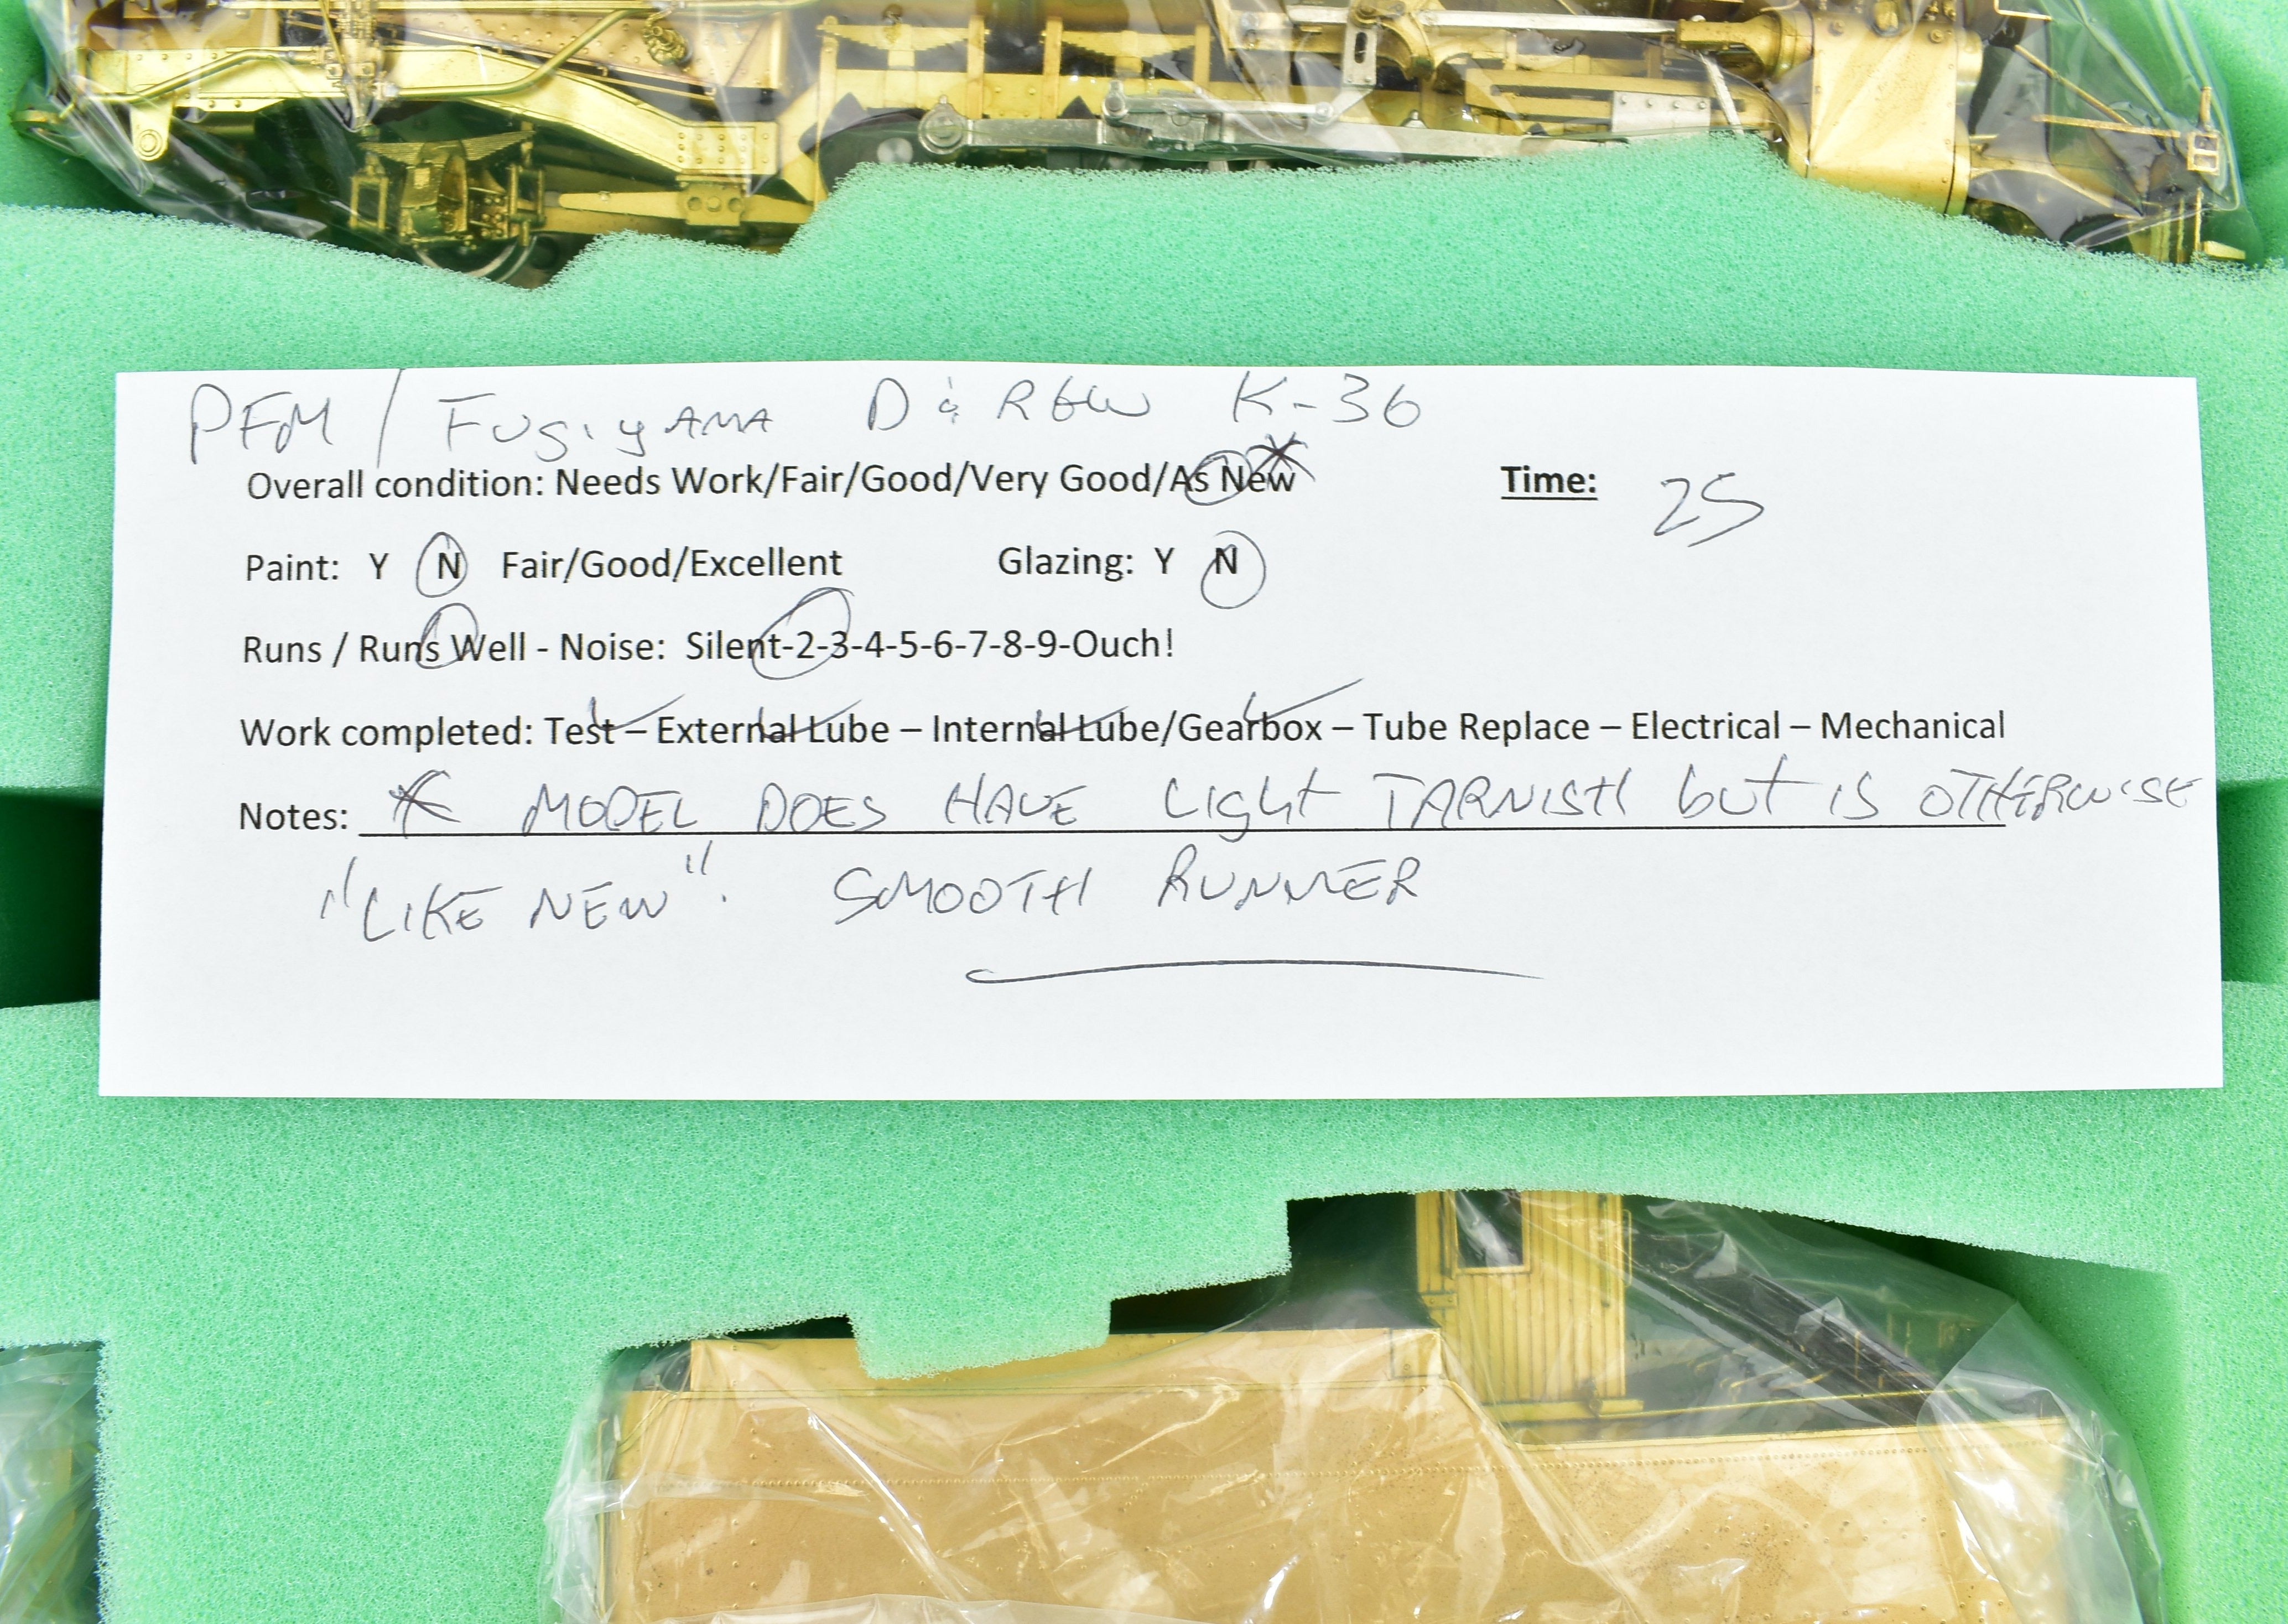 PFM / Fusiyama D & RGW K-36
Overall condition: Needs Work/Fair/Good/Very Good/As New Time: 25
Paint: Y N Fair/Good/Excellent Glazing: Y N
Runs / Runs Well - Noise: Silent-2-3-4-5-6-7-8-9-Ouch!
Work completed: Test – External Lube – Internal Lube/Gearbox – Tube Replace – Electrical – Mechanical
Notes: * MODEL DOES HAVE Light TARNISH but IS OTHERWISE
"LIKE NEW". SMOOTH RUNNER